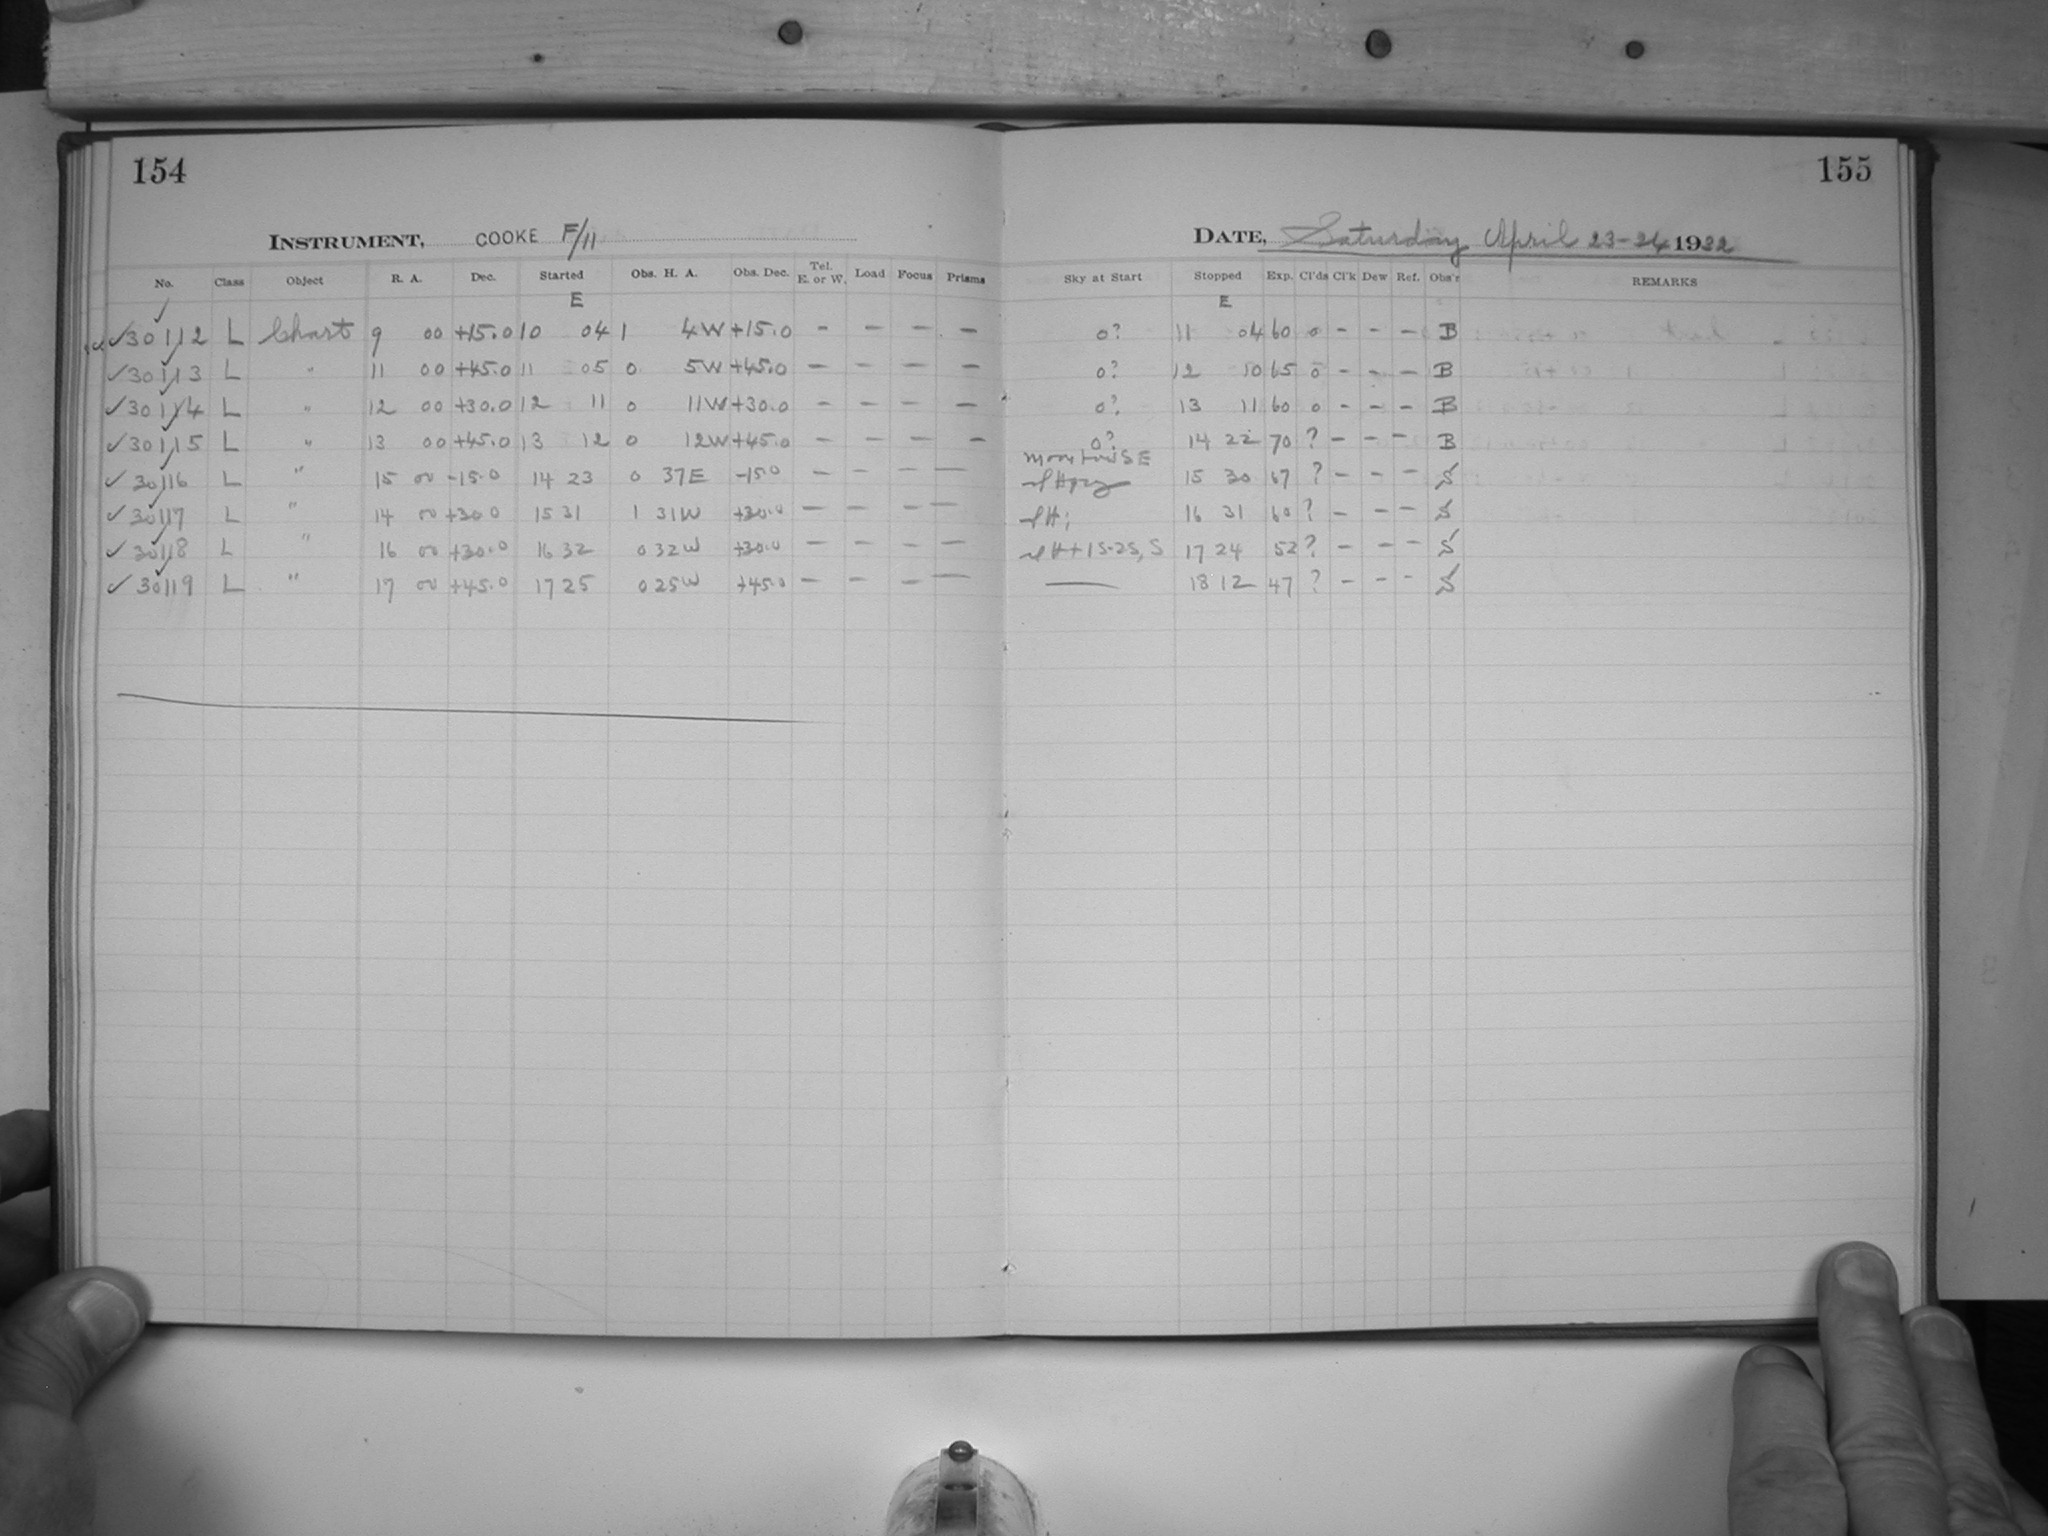 154
INSTRUMENT, COOKE F/11
No. Class Object R. A. Dec. Started Obs. H. A. Obs. Dec. Tel. E. or W. Load Focus Prisms
E
✓30112 L Chart 9 00 +15.0 10 04 1 4W +15.0 - - - -
✓30113 L " 11 00 +45.0 11 05 0 5W +45.0 - - - -
✓30114 L " 12 00 +30.0 12 11 0 11W +30.0 - - - -
✓30115 L " 13 00 +45.0 13 12 0 12W +45.0 - - - -
✓30116 L " 15 00 -15.0 14 23 0 37E -15.0 - - - -
✓30117 L " 14 00 +30.0 15 31 1 31W +30.0 - - - -
✓30118 L " 16 00 +30.0 16 32 0 32W +30.0 - - - -
✓30119 L " 17 00 +45.0 17 25 0 25W +45.0 - - - -
155
DATE, Saturday April 23-24 1932
Sky at Start Stopped Exp. Cl'ds Cl'k Dew Ref. Obs'r REMARKS
E
0? 11 04 60 0 - - - B
0? 12 10 65 0 - - - B
0? 13 11 60 0 - - - B
0? 14 22 70 ? - - - B
15 30 67 ? - - - S
16 31 60 ? - - - S
17 24 52 ? - - - S
— 18 12 47 ? - - - S